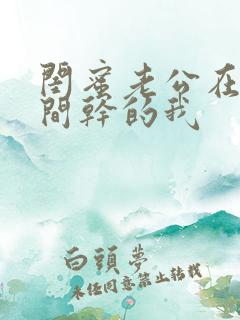 閨蜜老公在
間幹的我
白頭夢
未經同意禁止轉載